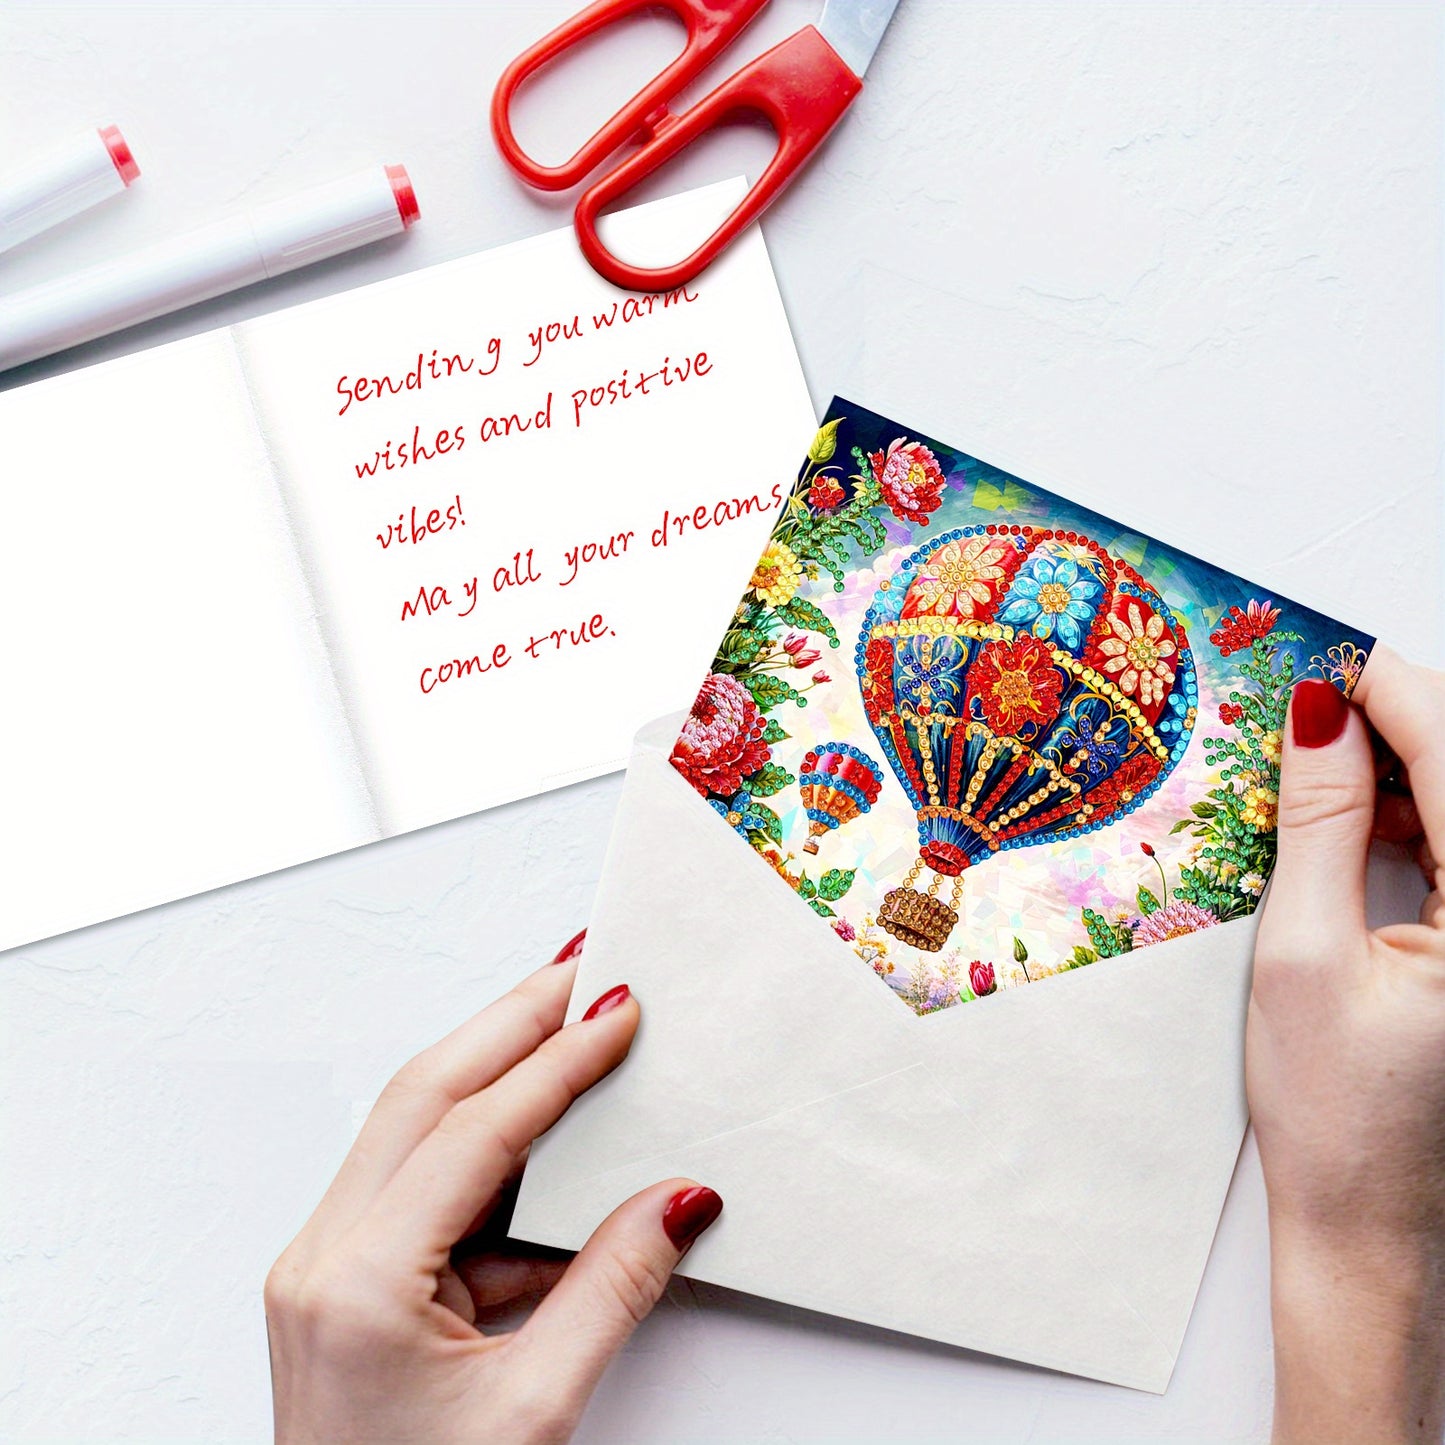 Sending you warm
wishes and positive
vibes!
May all your dreams
come true.